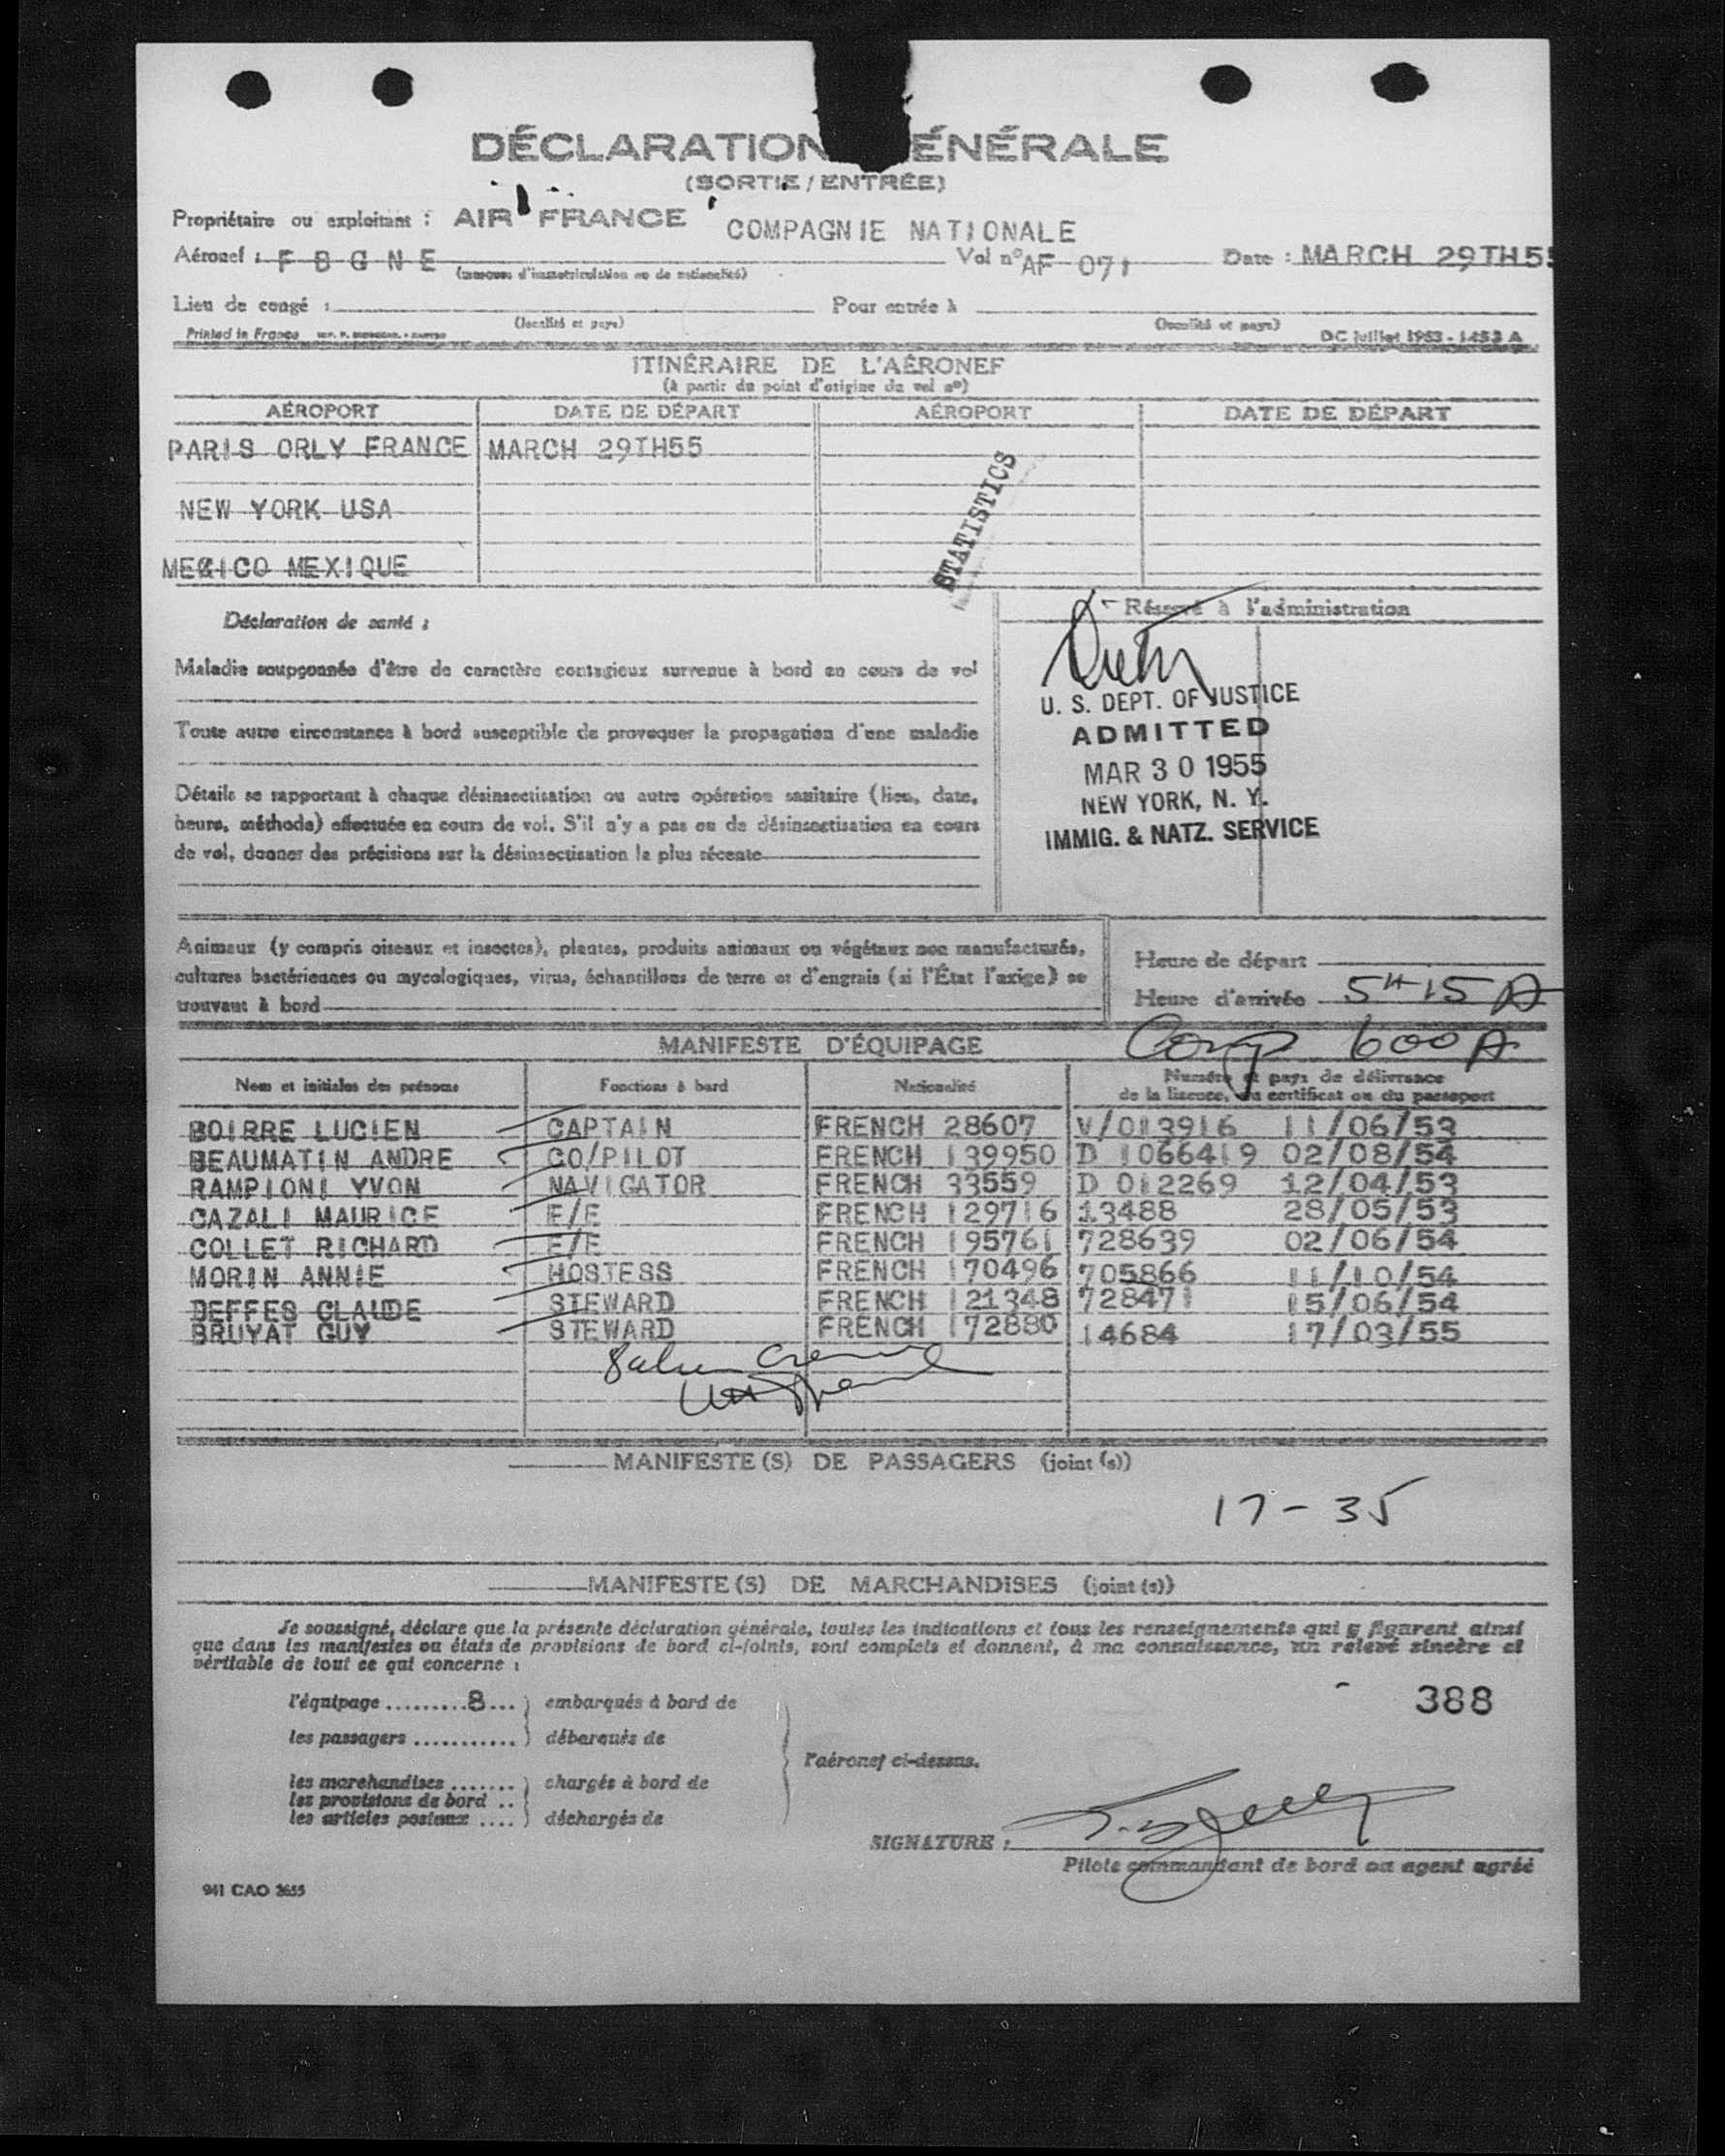 DÉCLARATION ÉNÉRALE
(SORTIE / ENTRÉE)
Propriétaire ou exploitant : AIR FRANCE COMPAGNIE NATIONALE
Aéronef : F B G N E Vol n° AF 071 Date : MARCH 29TH55
(marques d'immatriculation ou de nationalité)
Lieu de congé : Pour entrée à
(localité et pays) (localité et pays)
Printed in France DC juillet 1953 - 1453 A
ITINÉRAIRE DE L'AÉRONEF
(à partir du point d'origine du vol n°)
AÉROPORT DATE DE DÉPART AÉROPORT DATE DE DÉPART
PARIS ORLY FRANCE MARCH 29TH55
NEW YORK USA
MEXICO MEXIQUE
STATISTICS
Déclaration de santé :
Maladie soupçonnée d'être de caractère contagieux survenue à bord en cours de vol
Toute autre circonstance à bord susceptible de provoquer la propagation d'une maladie
Détails se rapportant à chaque désinsectisation ou autre opération sanitaire (lieu, date,
heure, méthode) effectuée en cours de vol. S'il n'y a pas eu de désinsectisation en cours
de vol, donner des précisions sur la désinsectisation la plus récente
Réservé à l'administration
U. S. DEPT. OF JUSTICE
ADMITTED
MAR 30 1955
NEW YORK, N. Y.
IMMIG. & NATZ. SERVICE
Animaux (y compris oiseaux et insectes), plantes, produits animaux ou végétaux non manufacturés,
cultures bactériennes ou mycologiques, virus, échantillons de terre et d'engrais (si l'État l'exige) se
trouvant à bord
Heure de départ
Heure d'arrivée 5H 15 A
Comp 600 A
MANIFESTE D'ÉQUIPAGE
Nom et initiales des prénoms Fonctions à bord Nationalité Numéro et pays de délivrance
de la licence, du certificat ou du passeport
BOIRRE LUCIEN CAPTAIN FRENCH 28607 V/013916 11/06/53
BEAUMATIN ANDRE CO/PILOT FRENCH 139950 D 1066419 02/08/54
RAMPIONI YVON NAVIGATOR FRENCH 33559 D 012269 12/04/53
CAZALI MAURICE F/E FRENCH 129716 13488 28/05/53
COLLET RICHARD F/E FRENCH 195761 728639 02/06/54
MORIN ANNIE HOSTESS FRENCH 170496 705866 11/10/54
DEFFES CLAUDE STEWARD FRENCH 121348 728471 15/06/54
BRUYAT GUY STEWARD FRENCH 172880 14684 17/03/55
MANIFESTE(S) DE PASSAGERS (joint(s))
17 - 35
MANIFESTE(S) DE MARCHANDISES (joint(s))
Je soussigné, déclare que la présente déclaration générale, toutes les indications et tous les renseignements qui y figurent ainsi
que dans les manifestes ou états de provisions de bord ci-joints, sont complets et donnent, à ma connaissance, un relevé sincère et
véritable de tout ce qui concerne :
l'équipage .........8... embarqués à bord de
les passagers ........... débarqués de
les marchandises ....... chargés à bord de
les provisions de bord ..
les articles postaux .... déchargés de
l'aéronef ci-dessus.
388
SIGNATURE :
Pilote commandant de bord ou agent agréé
941 CAO 2655